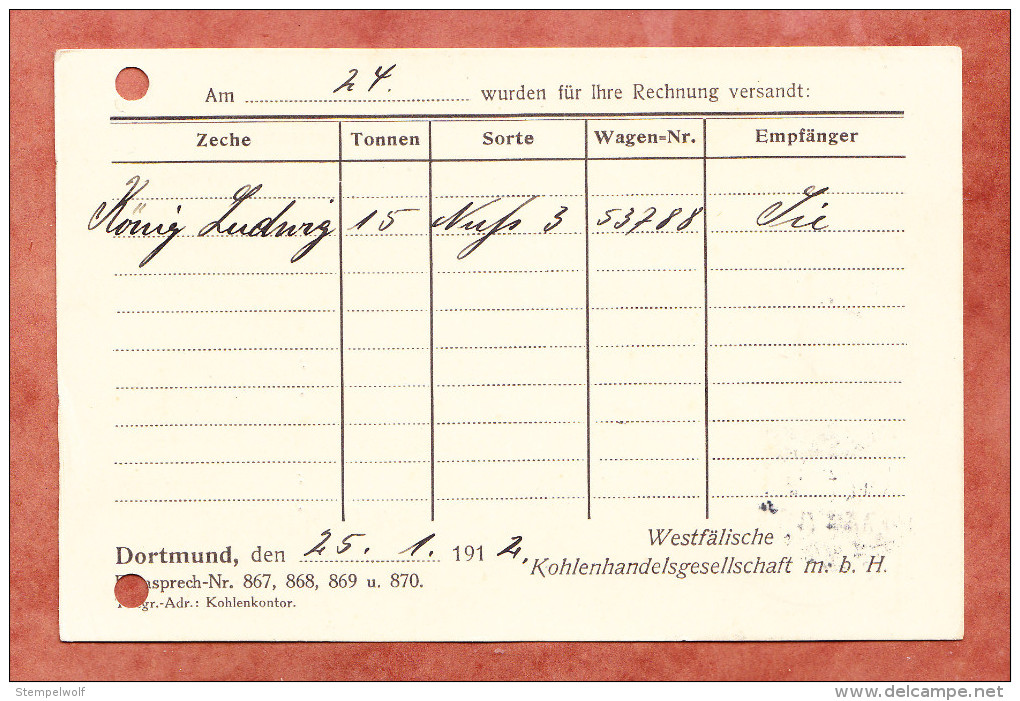 Am 24. wurden für Ihre Rechnung versandt:
Zeche Tonnen Sorte Wagen=Nr. Empfänger
König Ludwig 15 Nuss 3 53788 Sie
Dortmund, den 25. 1. 1912.
Westfälische
Kohlenhandelsgesellschaft m. b. H.
sprech-Nr. 867, 868, 869 u. 870.
gr.-Adr.: Kohlenkontor.
Stempelwolf
www.delcampe.net